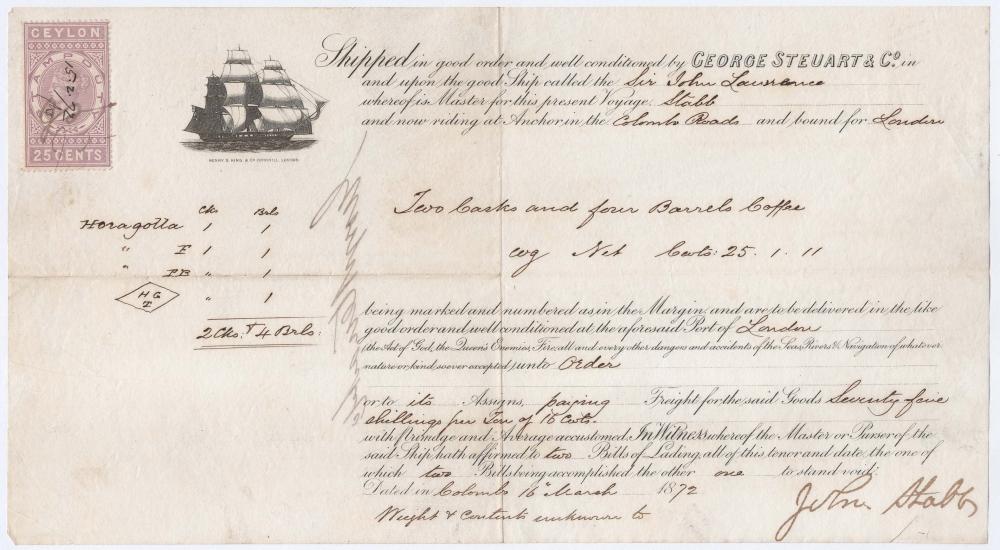 CEYLON
STAMP DUTY
25 CENTS
HENRY S. KING & CO CORNHILL, LONDON
Shipped in good order and well conditioned by GEORGE STEUART & Co. in
and upon the good Ship called the Sir John Lawrence
whereof is Master for this present Voyage, Stabb
and now riding at Anchor in the Colombo Roads and bound for London
Cks Brls
Horagolla 1 1
" F 1 1
" PB " 1
HG
T " 1
2 Cks: & 4 Brls:
Two Casks and four Barrels Coffee
Net Cwts: 25. 1. 11
being marked and numbered as in the Margin, and are to be delivered in the like
good order and well conditioned at the aforesaid Port of London
(the Act of God, the Queen's Enemies, Fire, all and every other dangers and accidents of the Seas, Rivers & Navigation of whatever
nature or kind, soever excepted,) unto Order
or to its Assigns, paying Freight for the said Goods Seventy five
shillings per Ton of 16 Cwts.
with Primage and Average accustomed. In Witness whereof the Master or Purser of the
said Ship hath affirmed to two Bills of Lading, all of this tenor and date, the one of
which two Bills being accomplished, the other one to stand void;
Dated in Colombo 16th March 1872
Weight & Contents unknown to
John Stabb